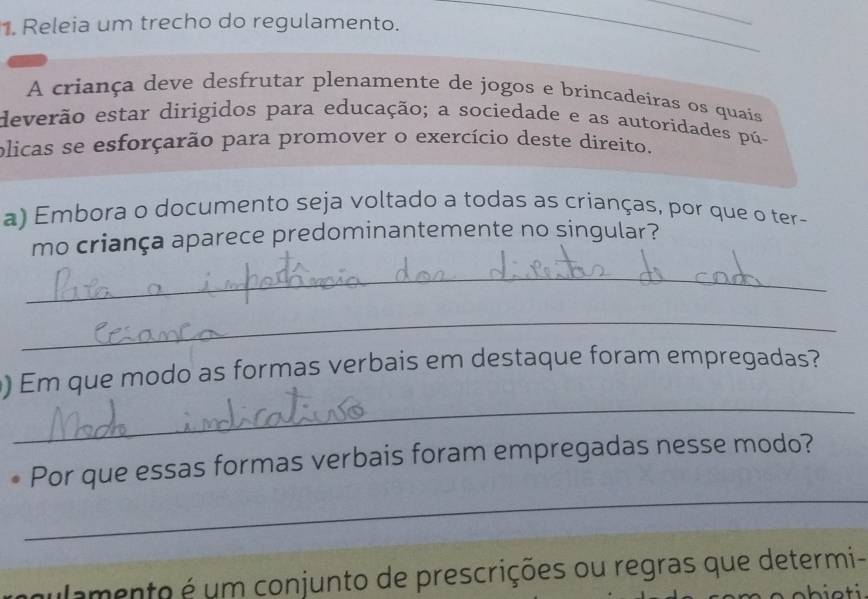 1. Releia um trecho do regulamento.
A criança deve desfrutar plenamente de jogos e brincadeiras os quais
deverão estar dirigidos para educação; a sociedade e as autoridades pú-
blicas se esforçarão para promover o exercício deste direito.
a) Embora o documento seja voltado a todas as crianças, por que o ter-
mo criança aparece predominantemente no singular?
Para a importância dos direitos de cada
criança
) Em que modo as formas verbais em destaque foram empregadas?
Modo indicativo
• Por que essas formas verbais foram empregadas nesse modo?
regulamento é um conjunto de prescrições ou regras que determi-